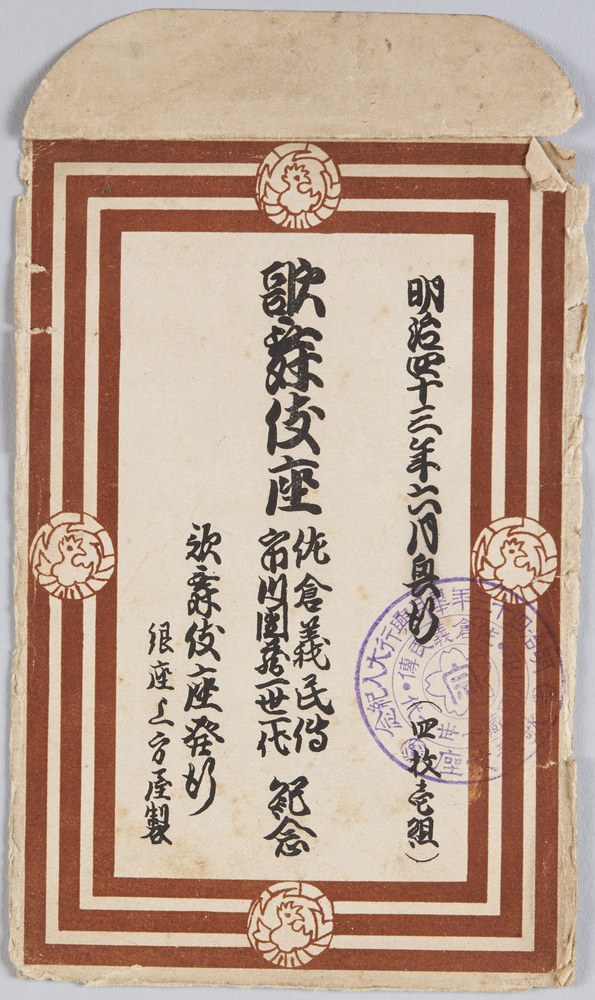 明治四十三年六月興行(四枚壱組)
歌舞伎座
佐倉義民傳
市川團蔵一世一代
紀念
歌舞伎座発行
銀座上方屋製
興行大入紀念